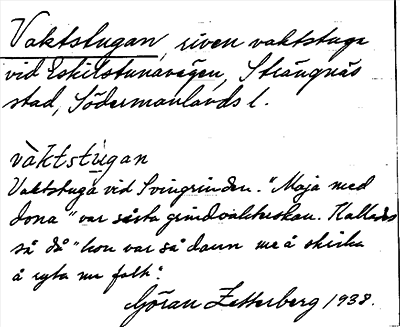 Vaktstugan, riven vaktstuga
vid Eskilstunavägen, Strängnäs
stad, Södermanlands l.
vàktstùgan
Vaktstuga vid Svingrinden. "Maja med
dona" var sista grindvakterskan. Kallades
så då "hon var så daun me å skicka
å ryta me folk".
Göran Zetterberg 1938.